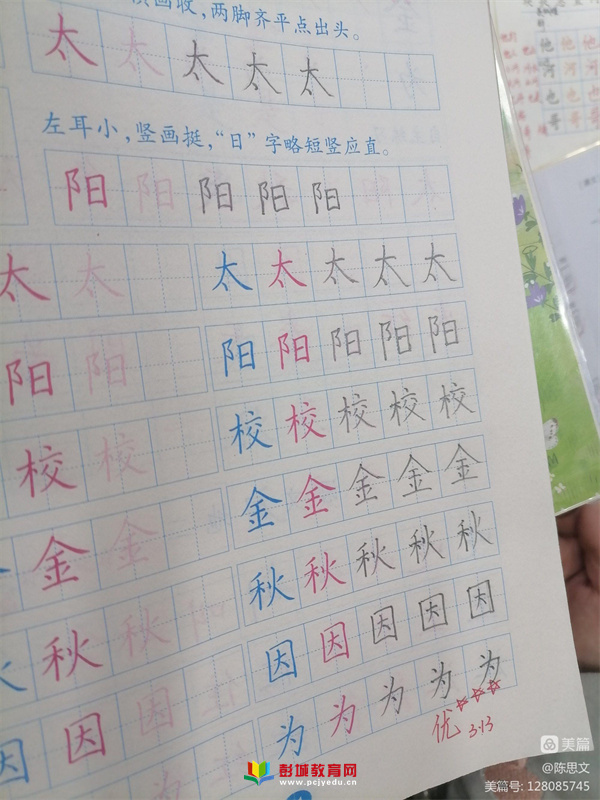 画收,两脚齐平点出头。
太 太 太 太 太
左耳小,竖画挺,“日”字略短竖应直。
阳 阳 阳 阳 阳
太 太 太 太 太 太 太
阳 阳 阳 阳 阳 阳 阳
校 校 校 校 校 校 校
金 金 金 金 金 金 金
秋 秋 秋 秋 秋 秋 秋
因 因 因 因 因 因 因
为 为 为 为 为 为
优 3.13
他 他
河 河 河
也 也 也
哥 哥 哥
美篇
@陈思文
美篇号: 128085745
彭城教育网
www.pcjyedu.cn